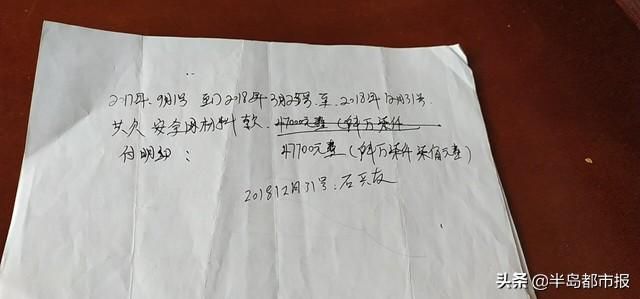 2017年.9月1号 至门2018年3月25号.至.2018年12月31号.
共欠安全网材料款.47000元整(肆万柒仟
付明细: 47700元整(肆万柒仟柒佰元整)
201812月31号.石
头条@半岛都市报